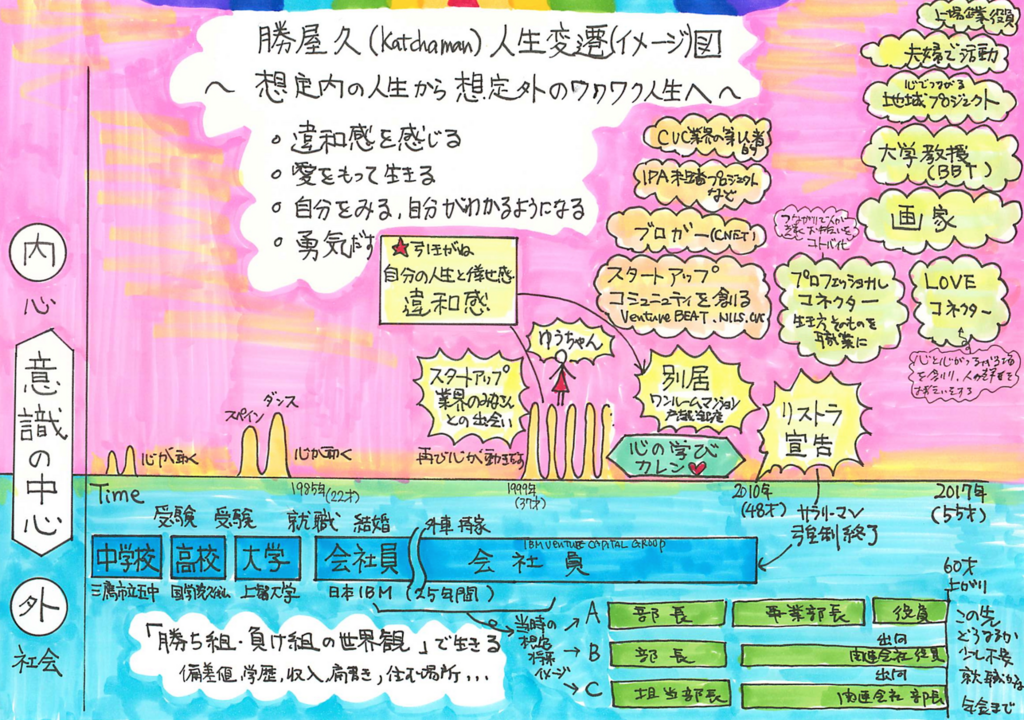 勝屋久(Katchaman)人生変遷(イメージ)図
〜 想定内の人生から想定外のワクワク人生へ 〜
○ 違和感を感じる
○ 愛をもって生きる
○ 自分をみる,自分がわかるようになる
○ 勇気だす
★引きがね
自分の人生と倖せ感
違和感
上場企業役員
夫婦で活動
心でつながる
地域プロジェクト
大学教授
(BBT)
画家
CVC業界の第1人者
的
IPA未踏プロジェクト
など
ブロガー(CNET)
スタートアップ
コミュニティを創る
Venture BEAT,NILS,CVC
プロフェッショナル
コネクター
生き方そのものを
職業に
LOVE
コネクター
ゆうちゃん
スタートアップ
業界のみなさん
との出会い
別居
ワンルームマンション
リストラ
宣告
心の学び
カレン
内
心
意識の中心
外
社会
心が動く
スペイン
ダンス
心が動く
再び心が動きだす
Time
1985年(22才)
1999年
(37才)
2010年
(48才)
2017年
(55才)
サラリーマン
強制終了
受験
受験
就職
結婚
中学校
高校
大学
会社員
会社員
IBM VENTURE CAPITAL GROUP
三鷹市立五中
上智大学
日本IBM
(25年間)
60才
上がり
「勝ち組・負け組の世界観」で生きる
偏差値,学歴,収入,肩書き,住む場所...
当時の
想定
将来
イメージ
A
部長
事業部長
役員
B
部長
出向
関連会社役員
C
担当部長
出向
関連会社部長
この先
どうなるか
少し不安
就職かな
年金まで